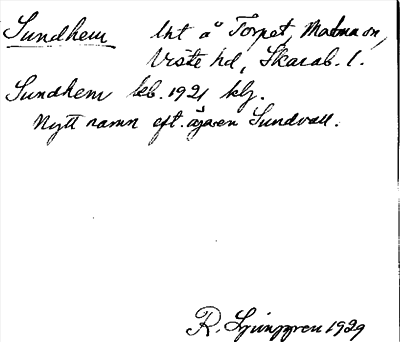 Sundhem lht å Torpet, Matna sn,
Viste hd, Skarab. l.
Sundhem keb. 1921 klg.
Nytt namn eft. ägaren Sundvall.
R. Ljunggren 1929